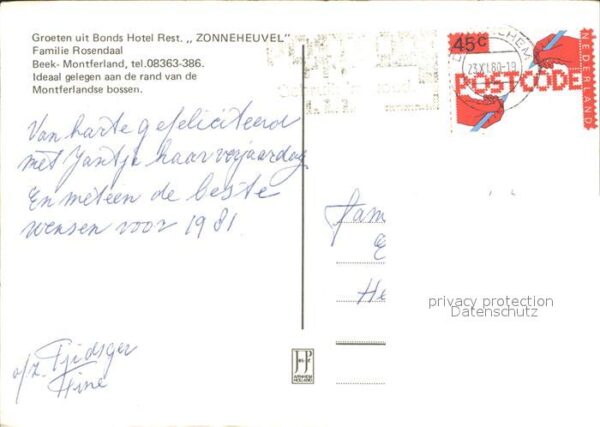 Groeten uit Bonds Hotel Rest. „ZONNEHEUVEL"
Familie Rosendaal
Beek- Montferland, tel.08363-386.
Ideaal gelegen aan de rand van de
Montferlandse bossen.
45c
POSTCODE
NEDERLAND
23.XI.80-19
Van harte gefeliciteerd
met Jantje haar verjaardag.
En meteen de beste
wensen voor 1981.
Fam
E
He
privacy protection
Datenschutz
JosP
ARNHEM
HOLLAND